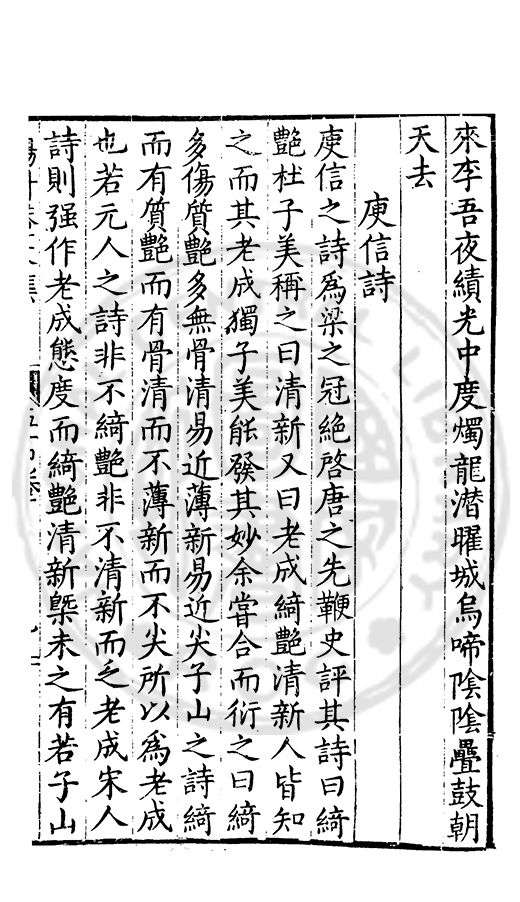 來李吾夜績光中度燭龍潛曜城烏啼隂隂疊鼓朝
天去
庾信詩
庾信之詩爲梁之冠絶啓唐之先鞭史評其詩曰綺
艷杜子美稱之曰清新又曰老成綺艷清新人皆知
之而其老成獨子美能發其妙余嘗合而衍之曰綺
多傷質艷多無骨清易近薄新易近尖子山之詩綺
而有質艷而有骨清而不薄新而不尖所以爲老成
也若元人之詩非不綺艷非不清新而乏老成宋人
詩則强作老成態度而綺艷清新槩未之有若子山